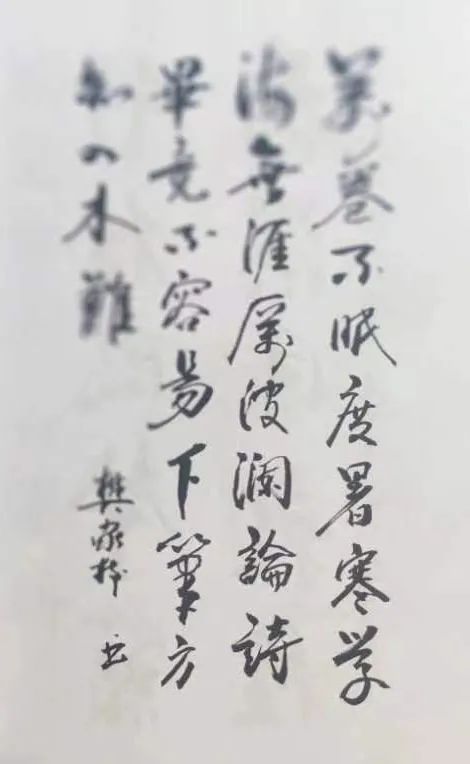 萬卷不眠度暑寒学
海無涯屬波瀾論詩
畢竟不容易下筆方
知入木難
樊家 书